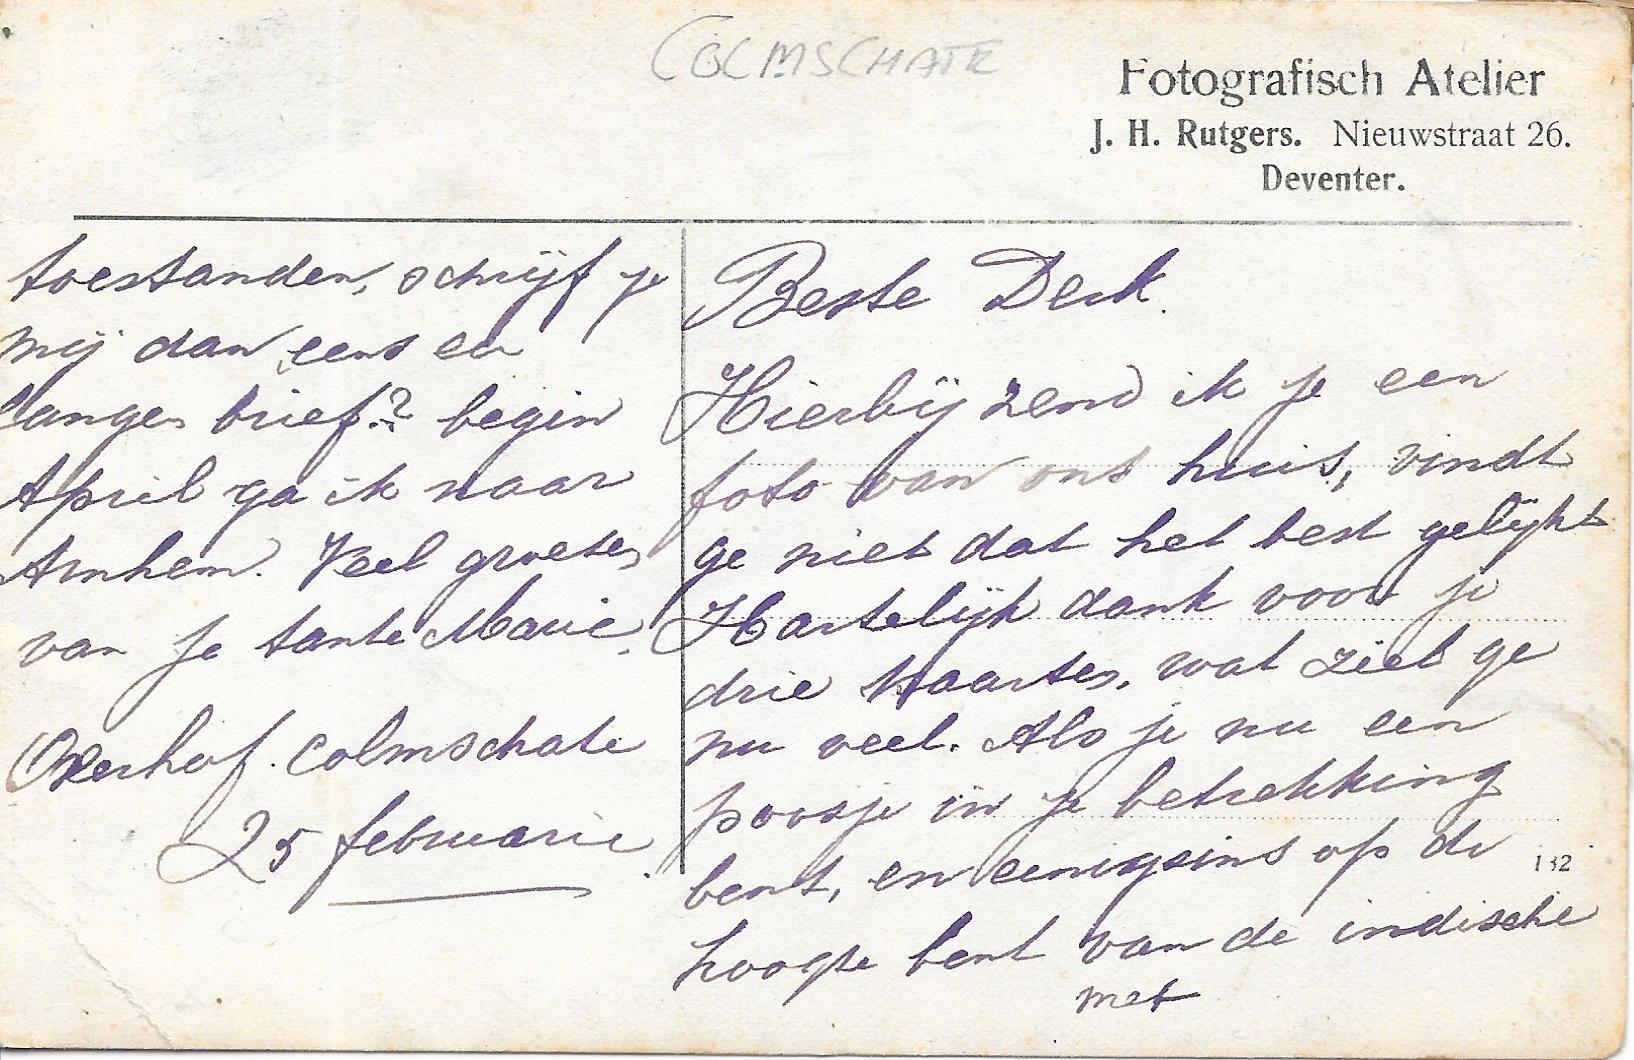 COLMSCHATE
Fotografisch Atelier
J. H. Rutgers. Nieuwstraat 26.
Deventer.
Beste Derk.
Hierbij zend ik je een
foto van ons huis, vindt
ge niet dat het best gelijkt
Hartelijk dank voor je
drie kaarten, wat ziet ge
nu veel. Als je nu een
poosje in je betrekking
bent, en eenigzins op de
hoogte bent van de indische
met
132
toestanden, schrijf je
mij dan eens een
langen brief? begin
April ga ik naar
Arnhem. Veel groeten
van je tante Marie.
Oxerhof. Colmschate
25 februarie.